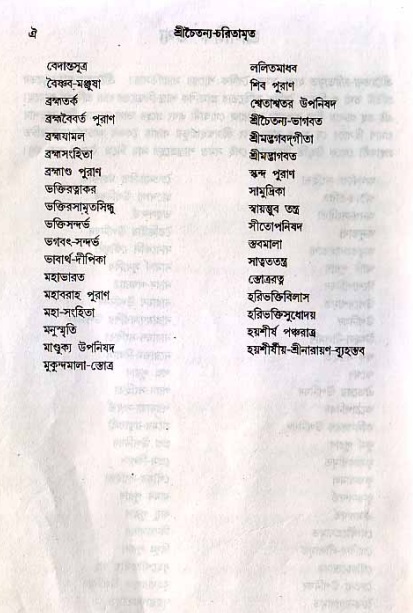 ঐ
শ্রীচৈতন্য-চরিতামৃত
বেদান্তসূত্র
বৈষ্ণব-মঞ্জুষা
ব্রহ্মতর্ক
ব্রহ্মবৈবর্ত পুরাণ
ব্রহ্মযামল
ব্রহ্মসংহিতা
ব্রহ্মাণ্ড পুরাণ
ভক্তিরত্নাকর
ভক্তিরসামৃতসিন্ধু
ভক্তিসন্দর্ভ
ভগবৎ-সন্দর্ভ
ভাবার্থ-দীপিকা
মহাভারত
মহাবরাহ পুরাণ
মহা-সংহিতা
মনুস্মৃতি
মাণ্ডুক্য উপনিষদ
মুকুন্দমালা-স্তোত্র
ললিতমাধব
শিব পুরাণ
শ্বেতাশ্বতর উপনিষদ
শ্রীচৈতন্য-ভাগবত
শ্রীমদ্ভগবদ্‌গীতা
শ্রীমদ্ভাগবত
স্কন্দ পুরাণ
সামুদ্রিকা
স্বায়ম্ভুব তন্ত্র
সীতোপনিষদ
স্তবমালা
সাত্বততন্ত্র
স্তোত্ররত্ন
হরিভক্তিবিলাস
হরিভক্তিসুধোদয়
হয়শীর্ষ পঞ্চরাত্র
হয়শীর্ষীয়-শ্রীনারায়ণ-ব্যূহস্তব